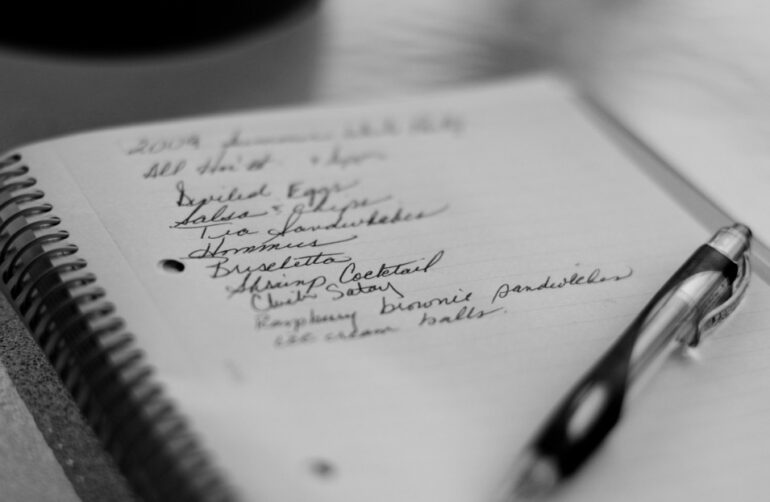 2009 Summer White Party
All
Deviled Eggs
Salsa & Chips
Tea Sandwhiches
Hommus
Bruschetta
Shrimp Cocktail
Satay
Raspberry brownie sandwiches
ice cream balls.